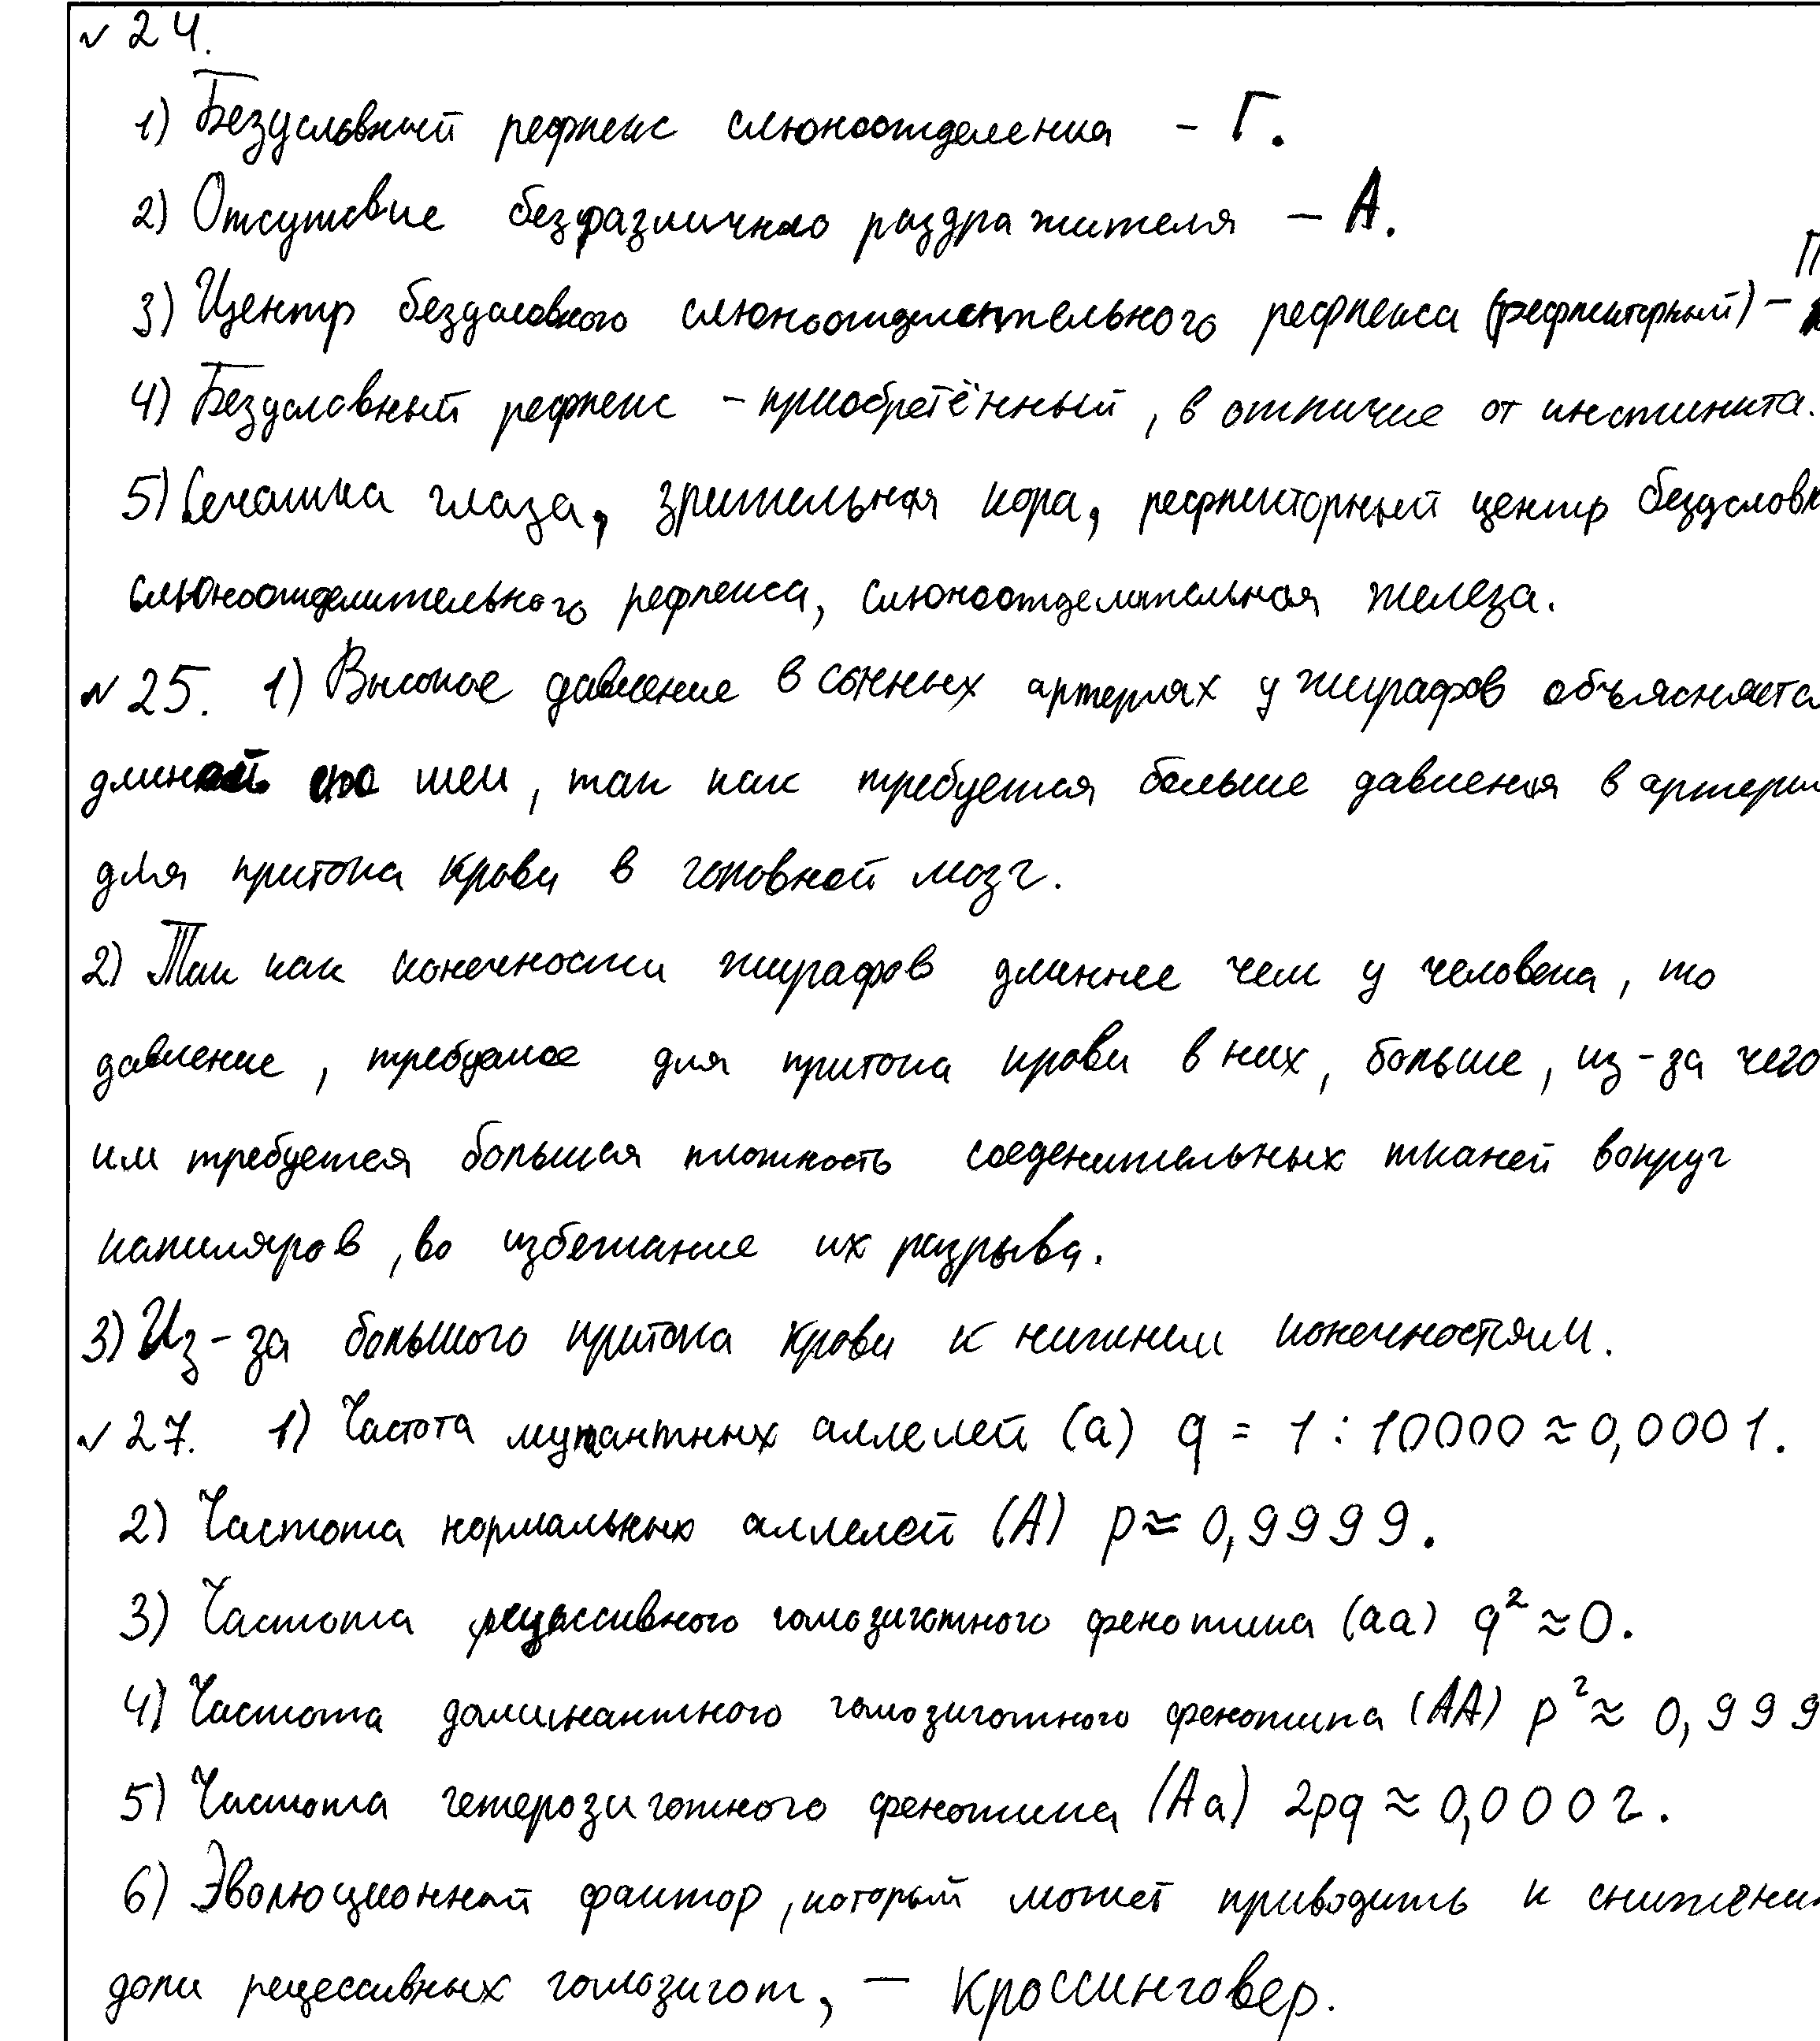 № 24.
1) Безусловный рефлекс слюноотделения – Г.
2) Отсутсвие безразличного раздражителя – А.
3) Центр безусловного слюноотделительного рефлекса (рефлекторный) – П
4) Безусловный рефлекс – приобретённый, в отличие от инстинкта.
5) Сечатка глаза, зрительная кора, рефлекторный центр безусловн
слюноотделительного рефлекса, слюноотделительная железа.
№ 25. 1) Высокое давление в сонных артериях у жирафов объясняетс
длиной шеи, так как требуется больше давления в артери
для притока крови в головной мозг.
2) Так как конечности жирафов длиннее чем у человека, то
давление, требуемое для притока крови в них, больше, из-за чего
им требуется большая плотность соеденительных тканей вокруг
капиляров, во избежание их разрыва.
3) Из-за большого притока крови к нижним конечностям.
№ 27. 1) Частота мутантных аллелей (а) q = 1 : 10000 ≈ 0,0001.
2) Частота нормальных аллелей (А) p ≈ 0,9999.
3) Частота рецессивного гомозиготного фенотипа (аа) q² ≈ 0.
4) Частота доминантного гомозиготного фенотипа (АА) p² ≈ 0,999
5) Частота гетерозиготного фенотипа (Аа) 2pq ≈ 0,0002.
6) Эволюционный фактор, который может приводить к снижени
доли рецессивных гомозигот, – кроссинговер.